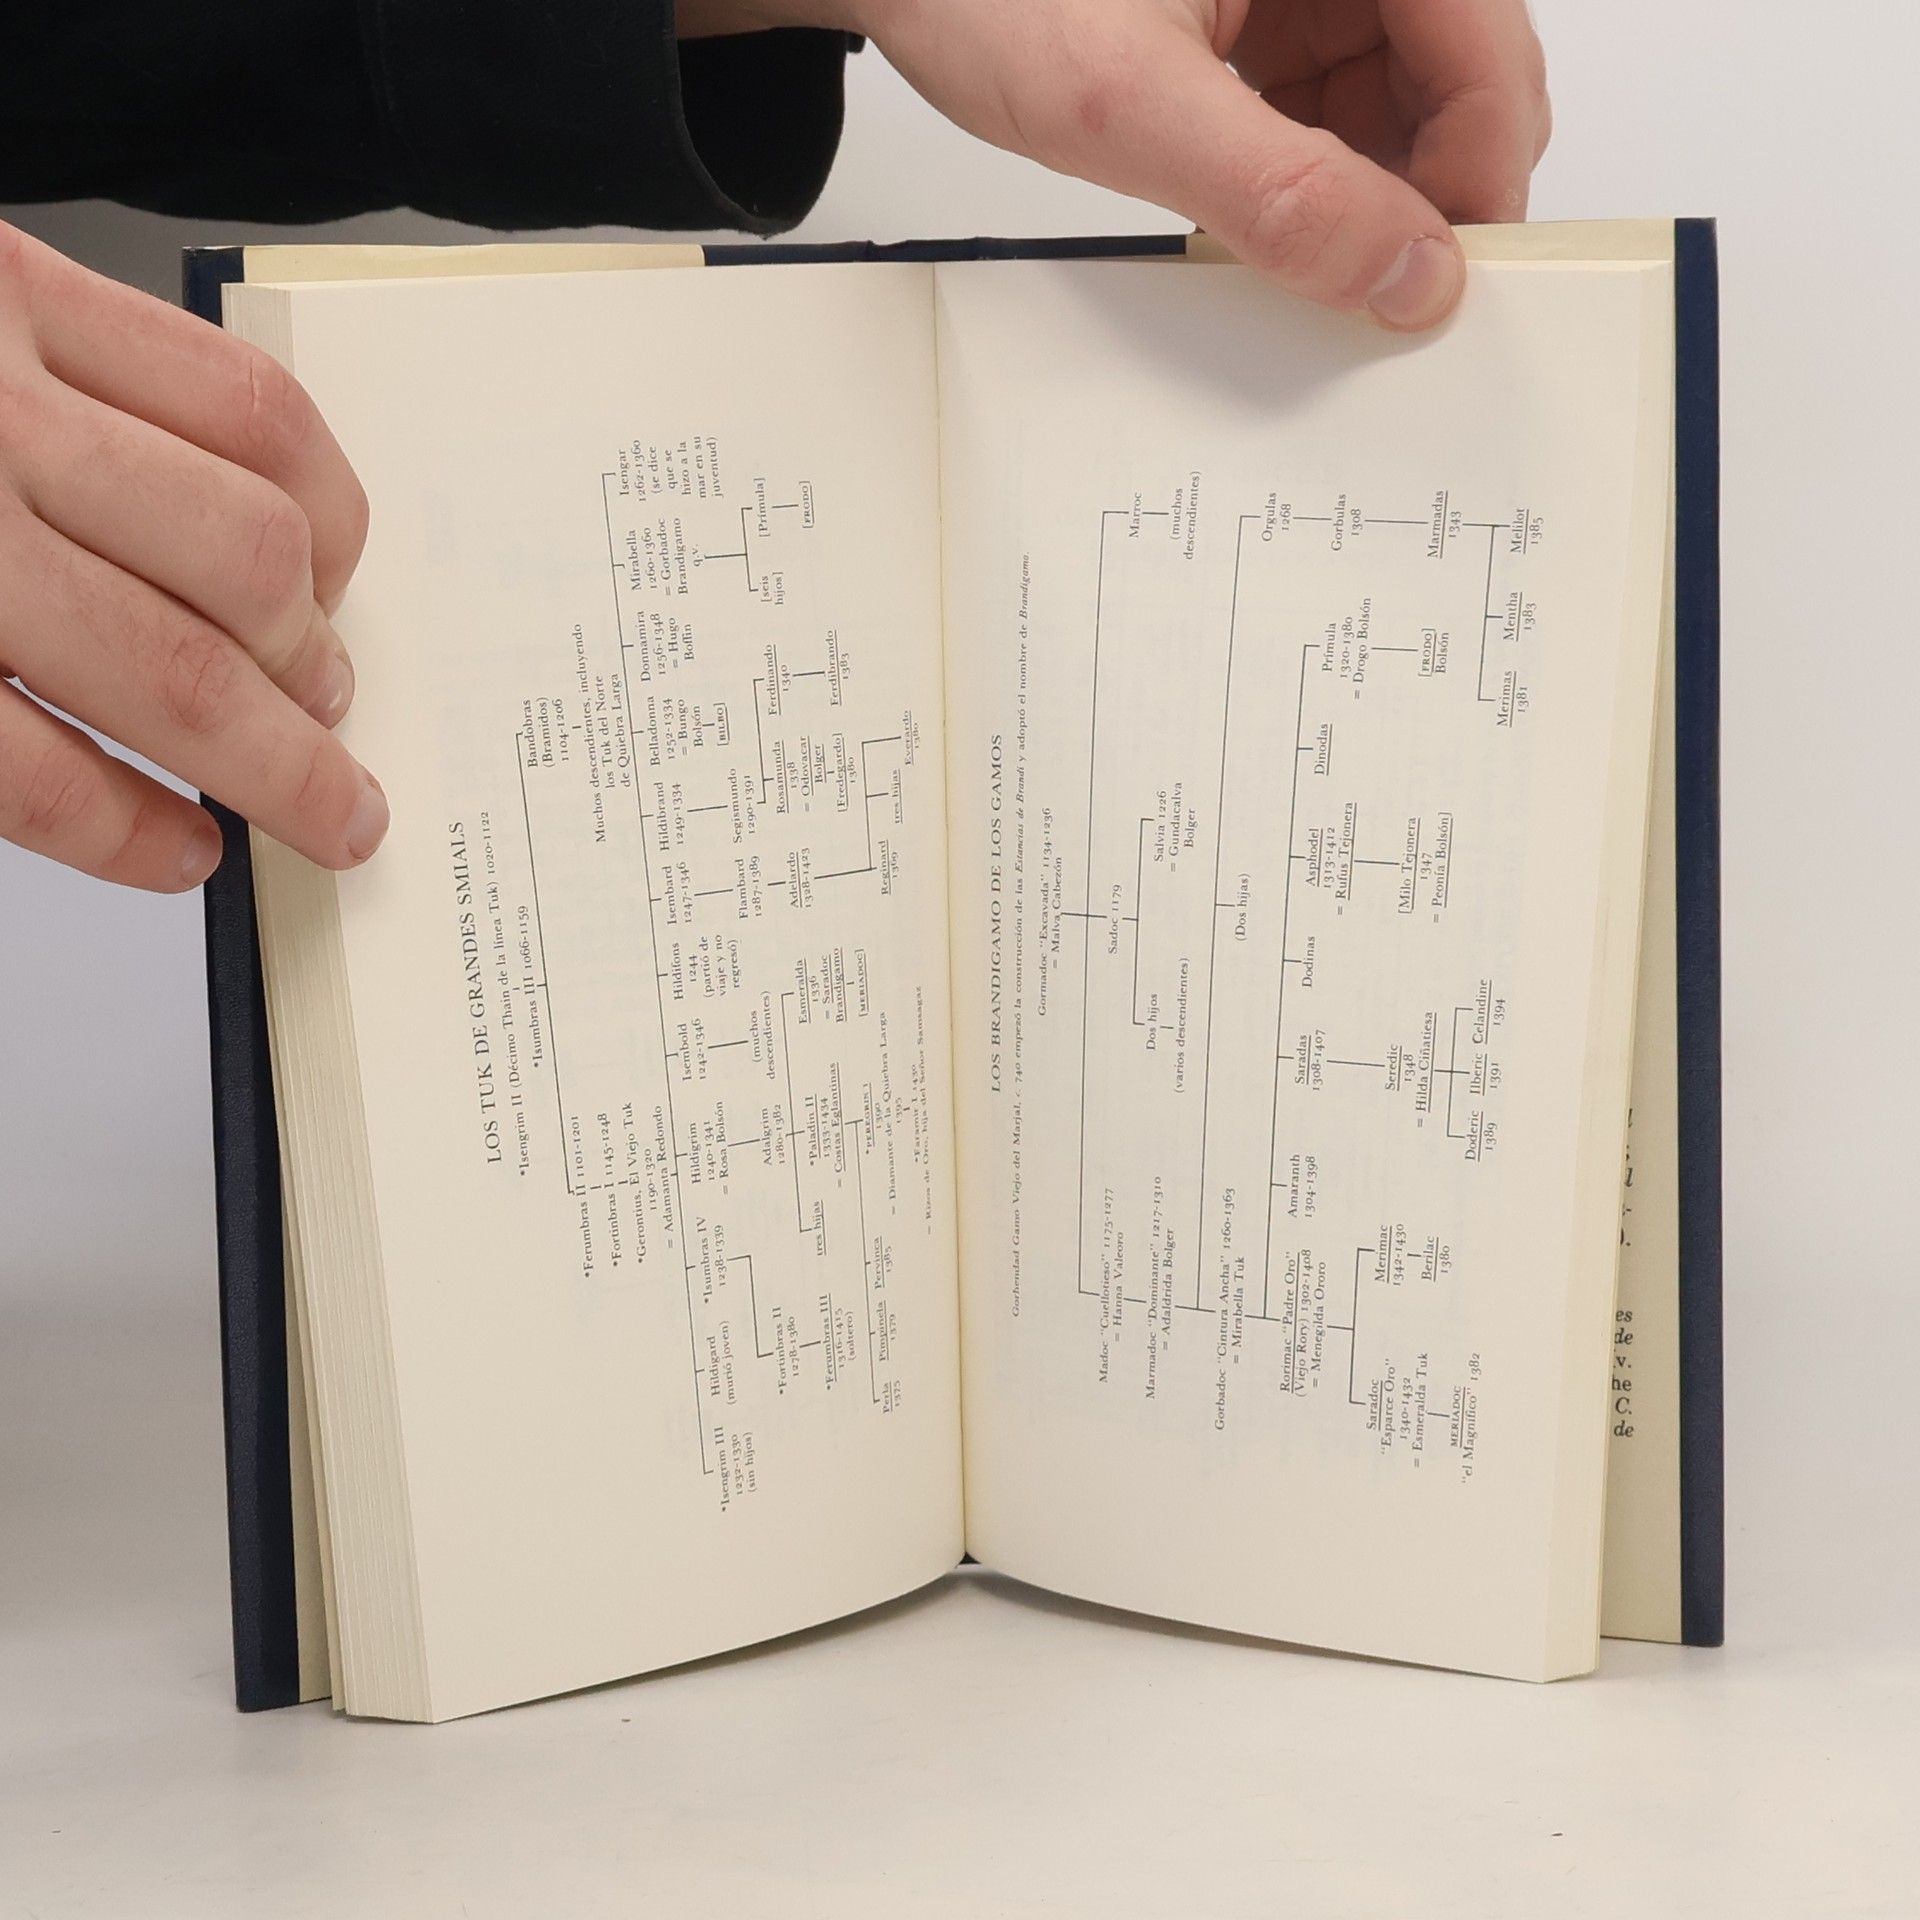 LOS TUK DE GRANDES SMIALS
*Isengrim II (Décimo Thain de la línea Tuk) 1020-1122
*Isumbras III 1066-1159
Bandobras
(Bramidos)
1104-1206
Muchos descendientes, incluyendo
los Tuk del Norte
de Quiebra Larga
*Ferumbras II 1101-1201
*Fortinbras I 1145-1248
*Gerontius, El Viejo Tuk
1190-1320
= Adamanta Redondo
*Isengrim III
1232-1330
(sin hijos)
Hildigard
(murió joven)
*Isumbras IV
1238-1339
Hildigrim
1240-1341
= Rosa Bolsón
Isembold
1242-1346
(muchos
descendientes)
Hildifons
1244
(partió de
viaje y no
regresó)
Isembard
1247-1346
Hildibrand
1249-1334
Belladonna
1252-1334
= Bungo
Bolsón
[BILBO]
Donnamira
1256-1348
= Hugo
Boffin
Mirabella
1260-1360
= Gorbadoc
Brandigamo
q.v.
Isengar
1262-1360
(se dice
que se
hizo a la
mar en su
juventud)
*Fortinbras II
1278-1380
Adalgrim
1280-1382
Flambard
1287-1389
Segismundo
1290-1391
[seis
hijos]
[Prímula]
*Ferumbras III
1316-1415
(soltero)
tres hijas
*Paladin II
1333-1434
= Costas Eglantinas
Esmeralda
1336
= Saradoc
Brandigamo
[MERIADOC]
Adelardo
1328-1423
Rosamunda
1338
= Odovacar
Bolger
[Fredegardo]
1380
Ferdinando
1340
Ferdibrando
1383
[FRODO]
Perla
1375
Pimpinela
1379
Pervinca
1385
*PEREGRIN I
1390
= Diamante de la Quiebra Larga
1395
Reginard
1369
tres hijas
Everardo
1380
*Faramir I 1430
= Rizos de Oro, hija del Señor Samsagaz
LOS BRANDIGAMO DE LOS GAMOS
Gorhendad Gamo Viejo del Marjal, c. 740 empezó la construcción de las Estancias de Brandi y adoptó el nombre de Brandigamo.
Gormadoc "Excavada" 1134-1236
= Malva Cabezón
Madoc "Cuellotieso" 1175-1277
= Hanna Valeoro
Sadoc 1179
Marroc
(muchos
descendientes)
Marmadoc "Dominante" 1217-1310
= Adaldrida Bolger
Dos hijos
(varios descendientes)
Salvia 1226
= Gundacalva
Bolger
Gorbadoc "Cintura Ancha" 1260-1363
= Mirabella Tuk
(Dos hijas)
Orgulas
1268
Gorbulas
1308
Marmadas
1343
Rorimac "Padre Oro"
(Viejo Rory) 1302-1408
= Menegilda Ororo
Amaranth
1304-1398
Saradas
1308-1407
Dodinas
Asphodel
1313-1412
= Rufus Tejonera
Dinodas
Prímula
1320-1380
= Drogo Bolsón
Saradoc
"Esparce Oro"
1340-1432
= Esmeralda Tuk
Merimac
1342-1430
Berilac
1380
Seredic
1348
= Hilda Ciñatiesa
[Milo Tejonera
1347
= Peonía Bolsón]
[FRODO]
Bolsón
MERIADOC
"el Magnífico" 1382
Doderic
1389
Ilberic
1391
Celandine
1394
Merimas
1381
Mentha
1383
Melilot
1385
es
de
v.
he
C.
de